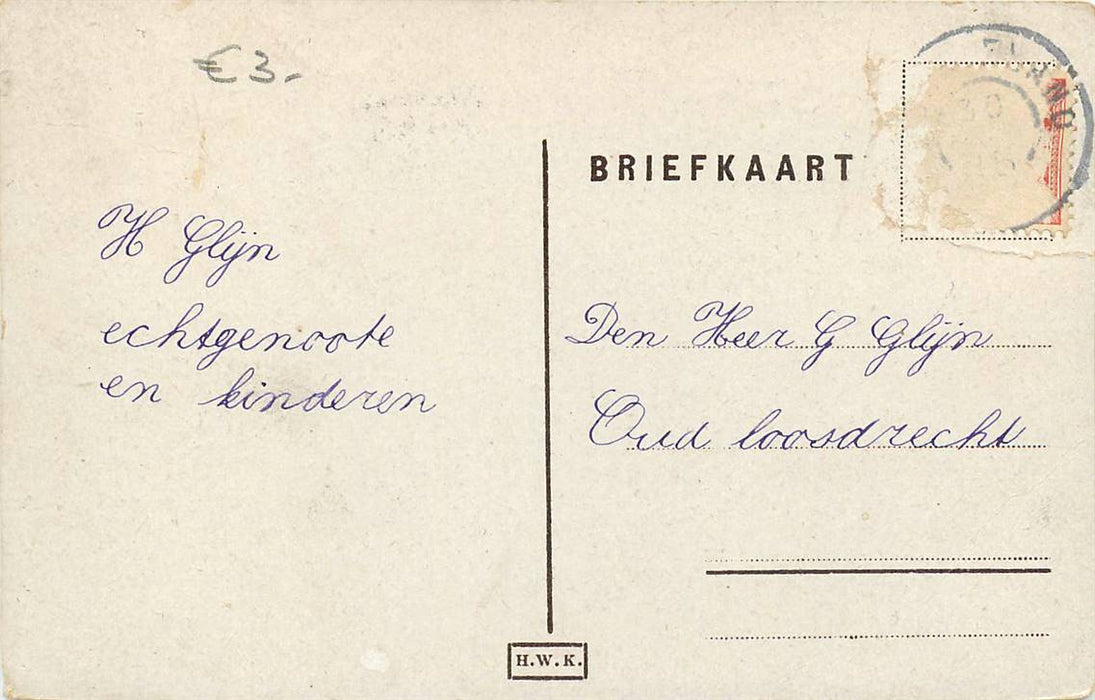 €3,-
H Glijn
echtgenoote
en kinderen
BRIEFKAART
30
Den Heer G Glijn
Oud loosdrecht
H.W.K.